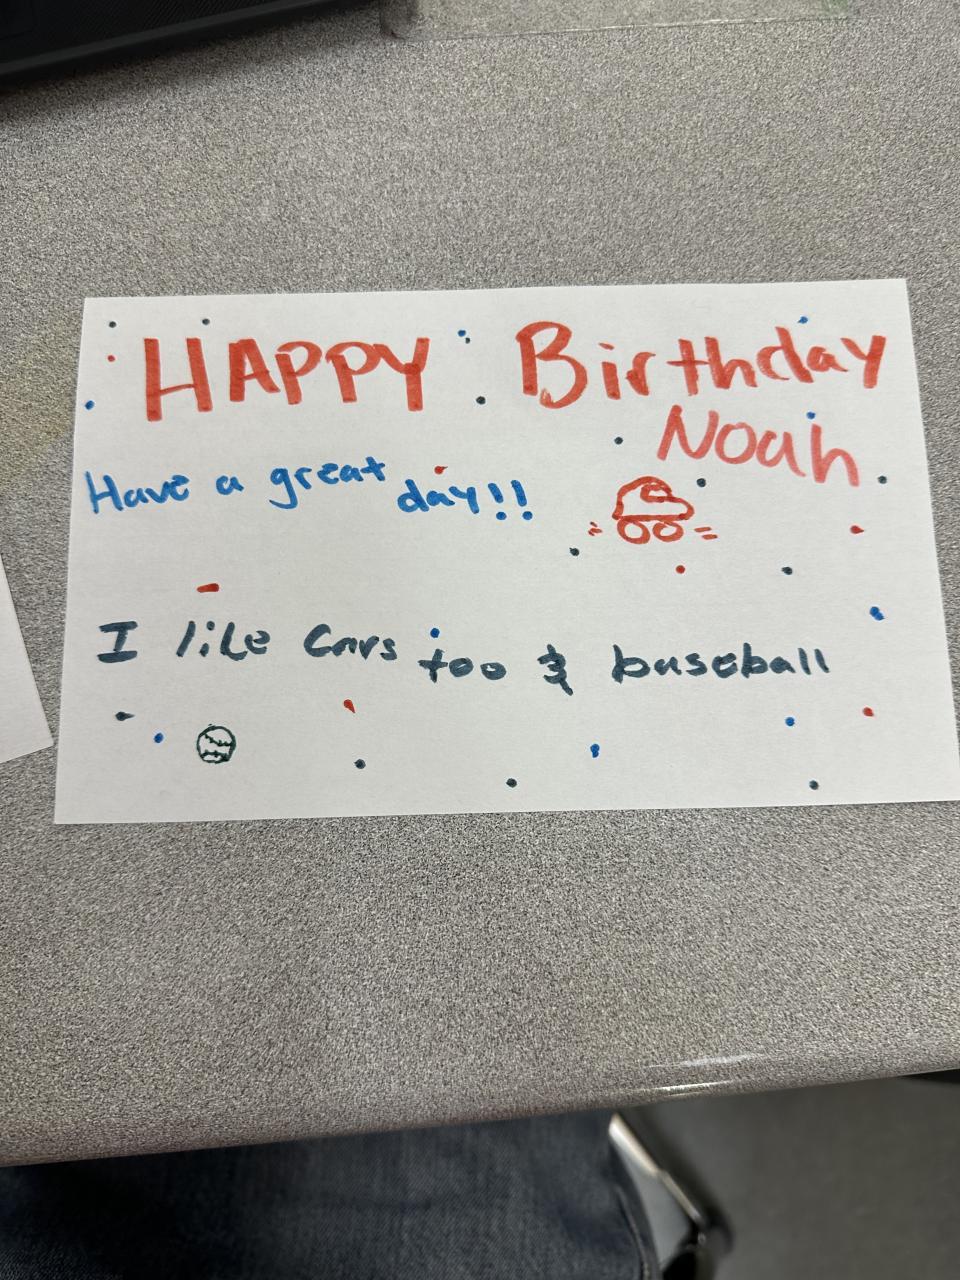 HAPPY Birthday
Noah
Have a great day!!
I like Cars too & baseball